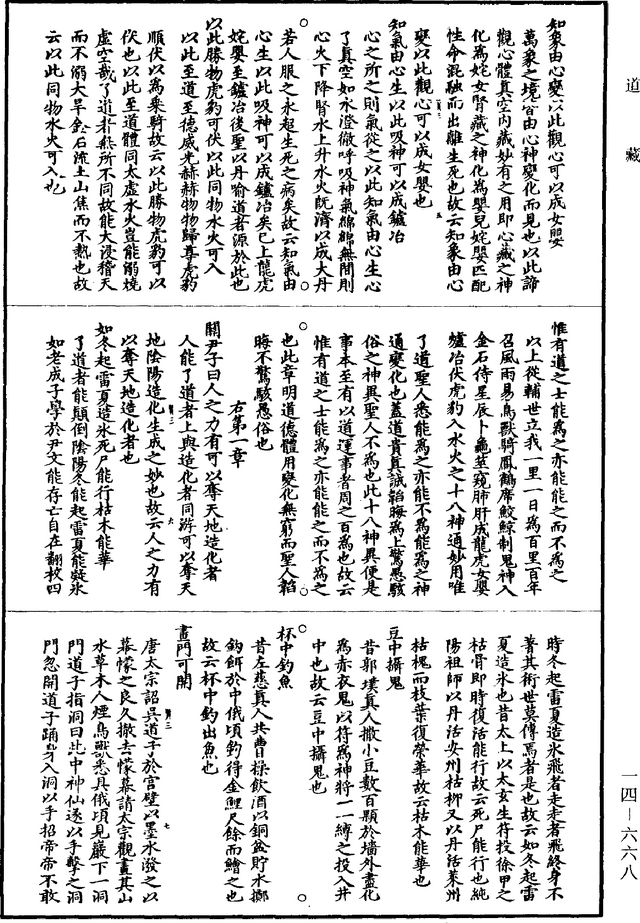 道藏
知象由心變以此觀心可以成女嬰
萬象之境皆由心神變化而見也以此諦
觀心體真空內藏妙有之用即心藏之神
化為姹女腎藏之神化為嬰兒姹嬰匹配
性命混融而出離生死也故云知象由心
變以此觀心可以成女嬰也
知氣由心生以此吸神可以成鑪冶
心之所之則氣從之以此知氣由心生心
了真空如水澄徹呼吸神氣綿綿無間則
心火下降腎水上升水火既濟以成大丹
若人服之永超生死之病矣故云知氣由
心生以此吸神可以成鑪冶矣已上龍虎
姹嬰至鑪冶後聖以丹喻道者源於此也
以此勝物虎豹可伏以此同物水火可入
以此至道至德威光赫赫物物歸尊虎豹
順伏以為乘騎故云以此勝物虎豹可以
伏也以此至道體同太虛水火豈能溺燒
虛空哉了道者無所不同故能大浸稽天
而不溺大旱金石流土山焦而不熱也故
云以此同物水火可入也
惟有道之士能為之亦能能之而不為之
以上從輔世立我一里一日為百里百年
召風雨易鳥獸騎鳳鶴席鮫鯨制鬼神入
金石侍星辰卜龜筮窺肺肝成龍虎女嬰
爐冶伏虎豹入水火之十八神通妙用唯
了道聖人悉能為之亦能不為能為之神
通變化也蓋道貴真誠韜晦為上驚愚駭
俗之神異聖人不為也此十八神異便是
事本至有以道運事者周之百為也故云
惟有道之士能為之亦能能之而不為之
也此章明道德體用變化無窮而聖人韜
晦不驚駭愚俗也
右第一章
關尹子曰人之力有可以奪天地造化者
人能了道者上與造化者同游可以奪天
地陰陽造化生成之妙也故云人之力有
以奪天地造化者也
如冬起雷夏造氷死尸能行枯木能華
了道者能顛倒陰陽冬能起雷夏能凝氷
如老成子學於尹文能存亡自在翻校四
時冬起雷夏造氷飛者走走者飛終身不
著其術世莫傳焉者是也故云如冬起雷
夏造氷也昔太上以太玄生符投徐甲之
枯骨即時復活能行故云死尸能行也純
陽祖師以丹活安州枯柳又以丹活萊州
枯槐而枝葉復榮華故云枯木能華也
豆中攝鬼
昔郭璞真人撒小豆數百顆於墻外盡化
為赤衣鬼以符為神將一一縛之投入井
中也故云豆中攝鬼也
杯中釣魚
昔左慈真人共曹操飲酒以銅盆貯水擲
鈎餌於中俄頃釣得金鯉尺餘而鱠之也
故云杯中釣出魚也
畫門可開
唐太宗詔吳道子於宮壁以墨水潑之以
幕幪之良久撤去幪幕請太宗觀畫其山
水草木人煙鳥獸悉具俄頃見巖下一洞
門道子指洞曰此中神仙遂以手擊之洞
門忽開道子踊身入洞以手招帝帝不敢
一四－六六八